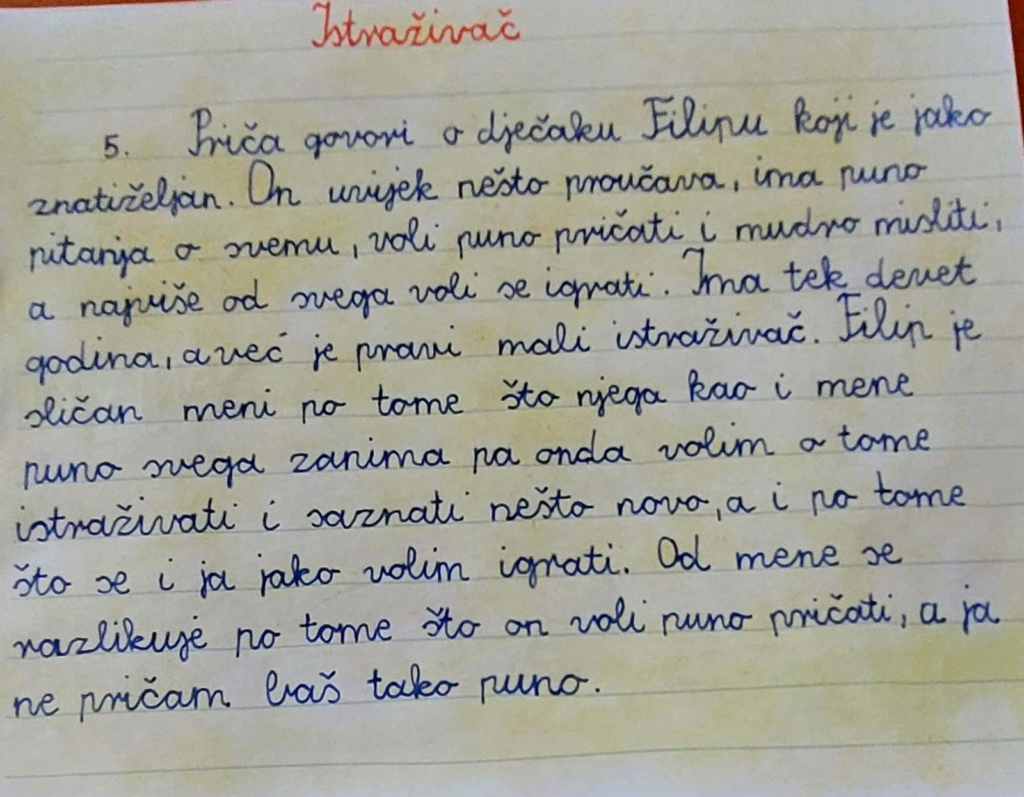 Istraživač
5. Priča govori o dječaku Filipu koji je jako
znatiželjan. On uvijek nešto proučava, ima puno
pitanja o svemu, voli puno pričati i mudro misliti,
a najviše od svega voli se igrati. Ima tek devet
godina, a već je pravi mali istraživač. Filip je
sličan meni po tome što njega kao i mene
puno svega zanima pa onda volim o tome
istraživati i saznati nešto novo, a i po tome
što se i ja jako volim igrati. Od mene se
razlikuje po tome što on voli puno pričati, a ja
ne pričam baš tako puno.